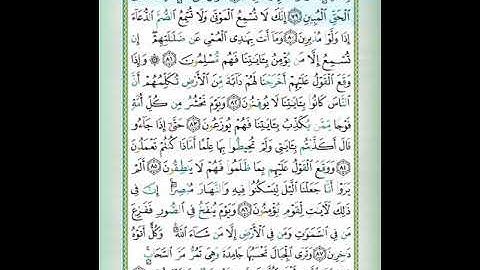 ٱلْحَقِّ ٱلْمُبِينِ ﴿٧٩﴾ إِنَّكَ لَا تُسْمِعُ ٱلْمَوْتَىٰ وَلَا تُسْمِعُ ٱلصُّمَّ ٱلدُّعَآءَ
إِذَا وَلَّوْا۟ مُدْبِرِينَ ﴿٨٠﴾ وَمَآ أَنتَ بِهَٰدِى ٱلْعُمْىِ عَن ضَلَٰلَتِهِمْ ۖ إِن
تُسْمِعُ إِلَّا مَن يُؤْمِنُ بِـَٔايَٰتِنَا فَهُم مُّسْلِمُونَ ﴿٨١﴾ ۞ وَإِذَا
وَقَعَ ٱلْقَوْلُ عَلَيْهِمْ أَخْرَجْنَا لَهُمْ دَآبَّةً مِّنَ ٱلْأَرْضِ تُكَلِّمُهُمْ أَنَّ
ٱلنَّاسَ كَانُوا۟ بِـَٔايَٰتِنَا لَا يُوقِنُونَ ﴿٨٢﴾ وَيَوْمَ نَحْشُرُ مِن كُلِّ أُمَّةٍ
فَوْجًا مِّمَّن يُكَذِّبُ بِـَٔايَٰتِنَا فَهُمْ يُوزَعُونَ ﴿٨٣﴾ حَتَّىٰٓ إِذَا جَآءُو
قَالَ أَكَذَّبْتُم بِـَٔايَٰتِى وَلَمْ تُحِيطُوا۟ بِهَا عِلْمًا أَمَّاذَا كُنتُمْ تَعْمَلُونَ
﴿٨٤﴾ وَوَقَعَ ٱلْقَوْلُ عَلَيْهِم بِمَا ظَلَمُوا۟ فَهُمْ لَا يَنطِقُونَ ﴿٨٥﴾ أَلَمْ
يَرَوْا۟ أَنَّا جَعَلْنَا ٱلَّيْلَ لِيَسْكُنُوا۟ فِيهِ وَٱلنَّهَارَ مُبْصِرًا ۚ إِنَّ فِى
ذَٰلِكَ لَـَٔايَٰتٍ لِّقَوْمٍ يُؤْمِنُونَ ﴿٨٦﴾ وَيَوْمَ يُنفَخُ فِى ٱلصُّورِ فَفَزِعَ
مَن فِى ٱلسَّمَٰوَٰتِ وَمَن فِى ٱلْأَرْضِ إِلَّا مَن شَآءَ ٱللَّهُ ۚ وَكُلٌّ أَتَوْهُ
دَٰخِرِينَ ﴿٨٧﴾ وَتَرَى ٱلْجِبَالَ تَحْسَبُهَا جَامِدَةً وَهِىَ تَمُرُّ مَرَّ ٱلسَّحَابِ ۚ